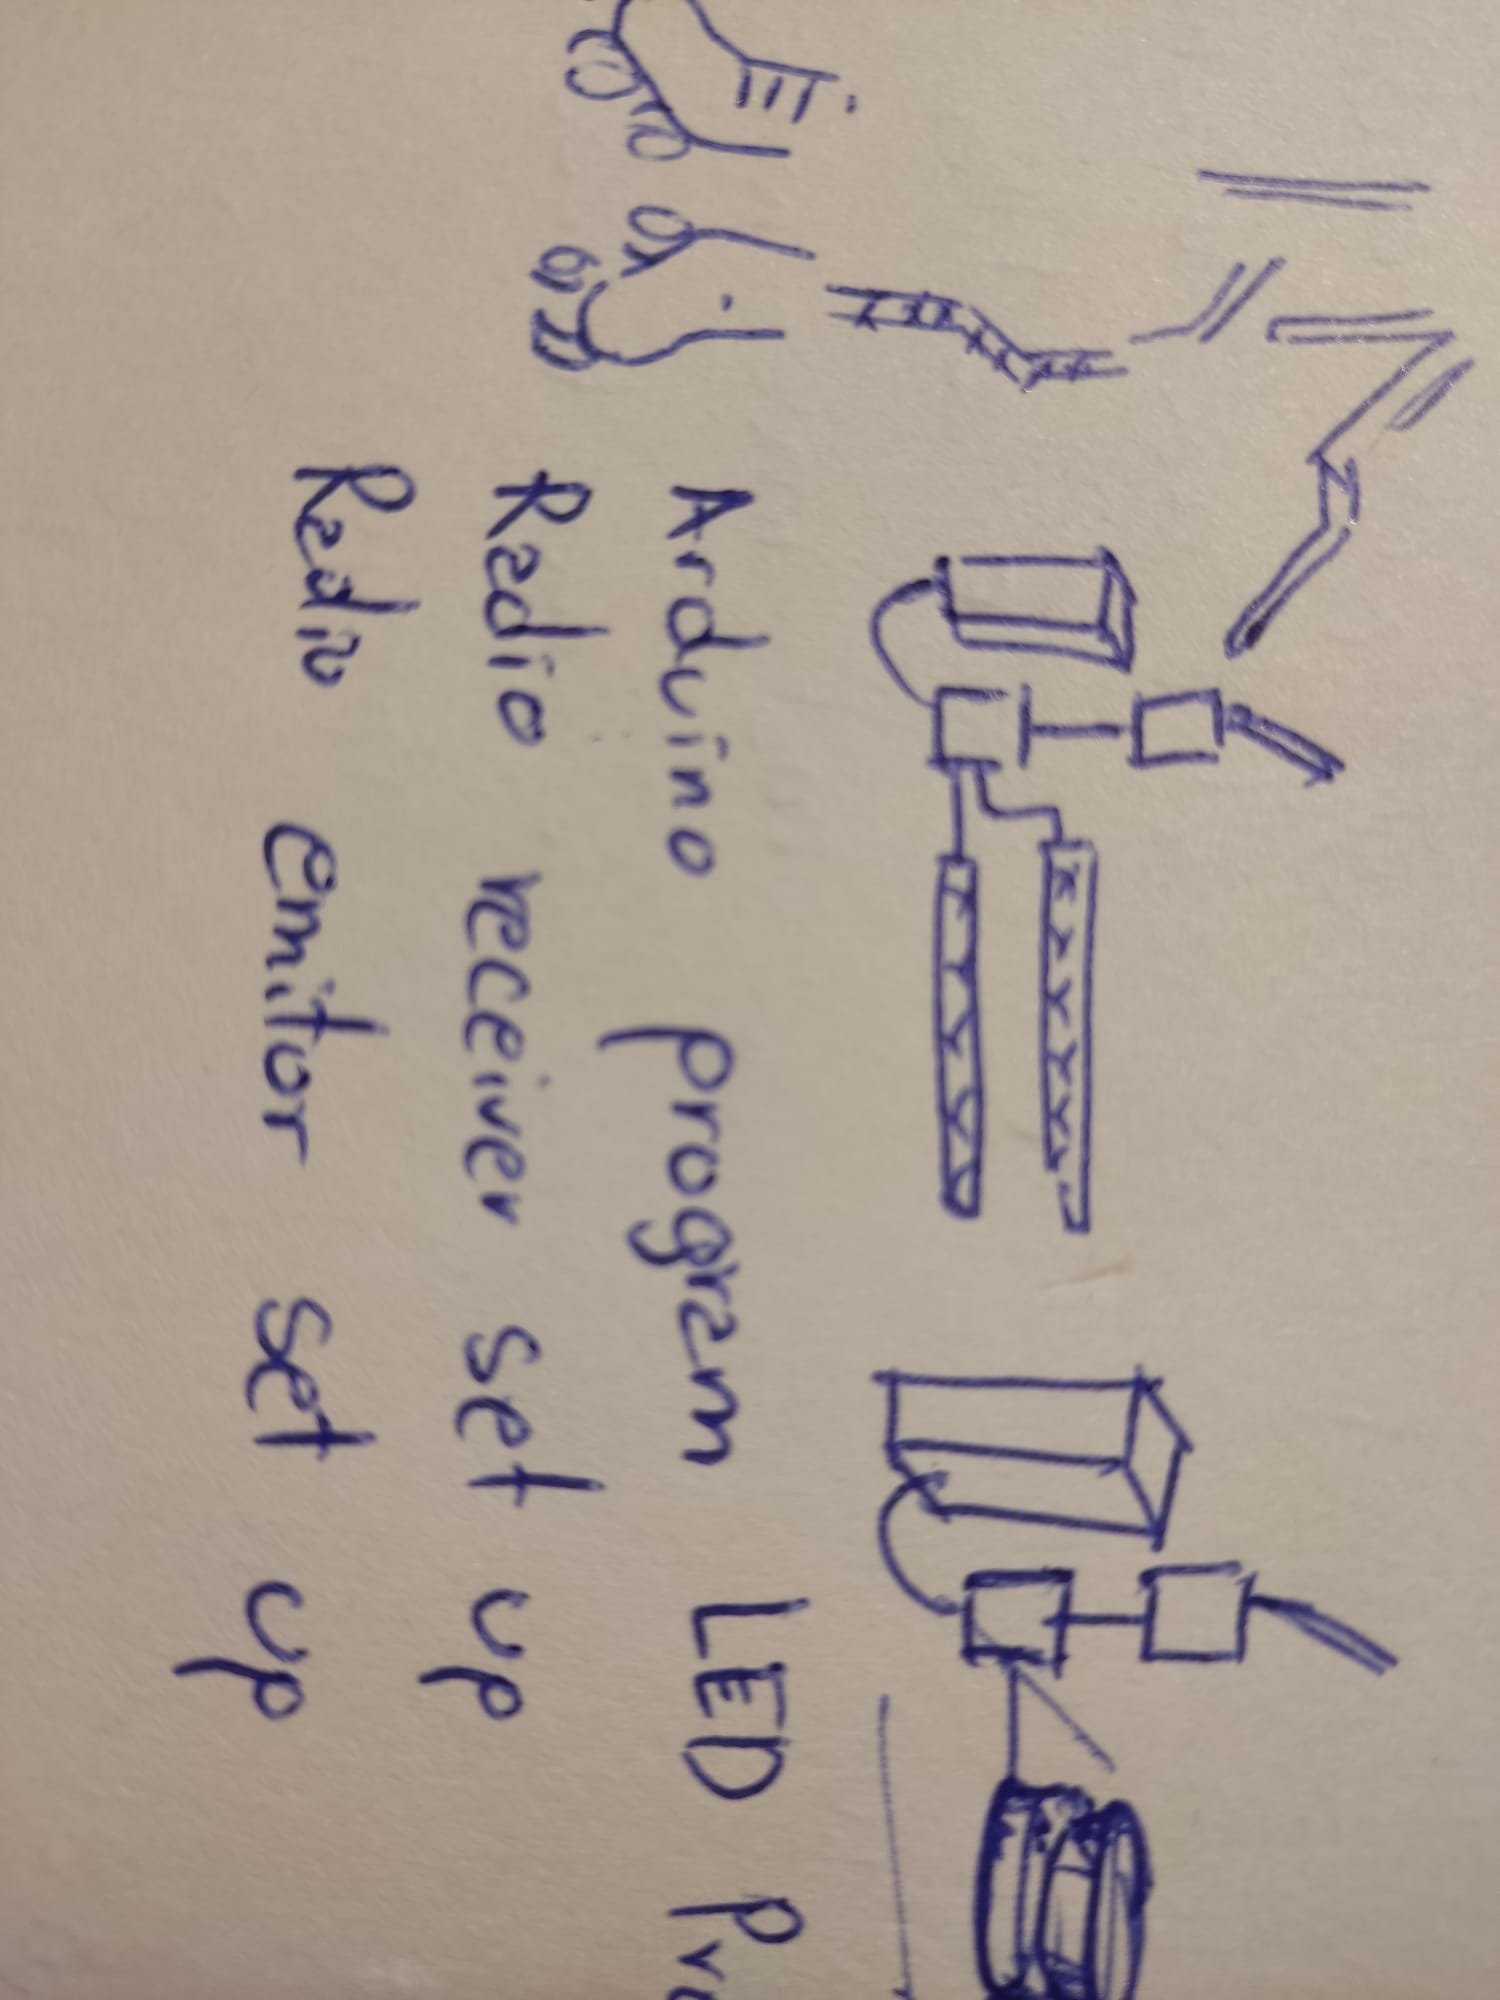 Arduino program LED Pro
Radio receiver set up
Radio emitor set up